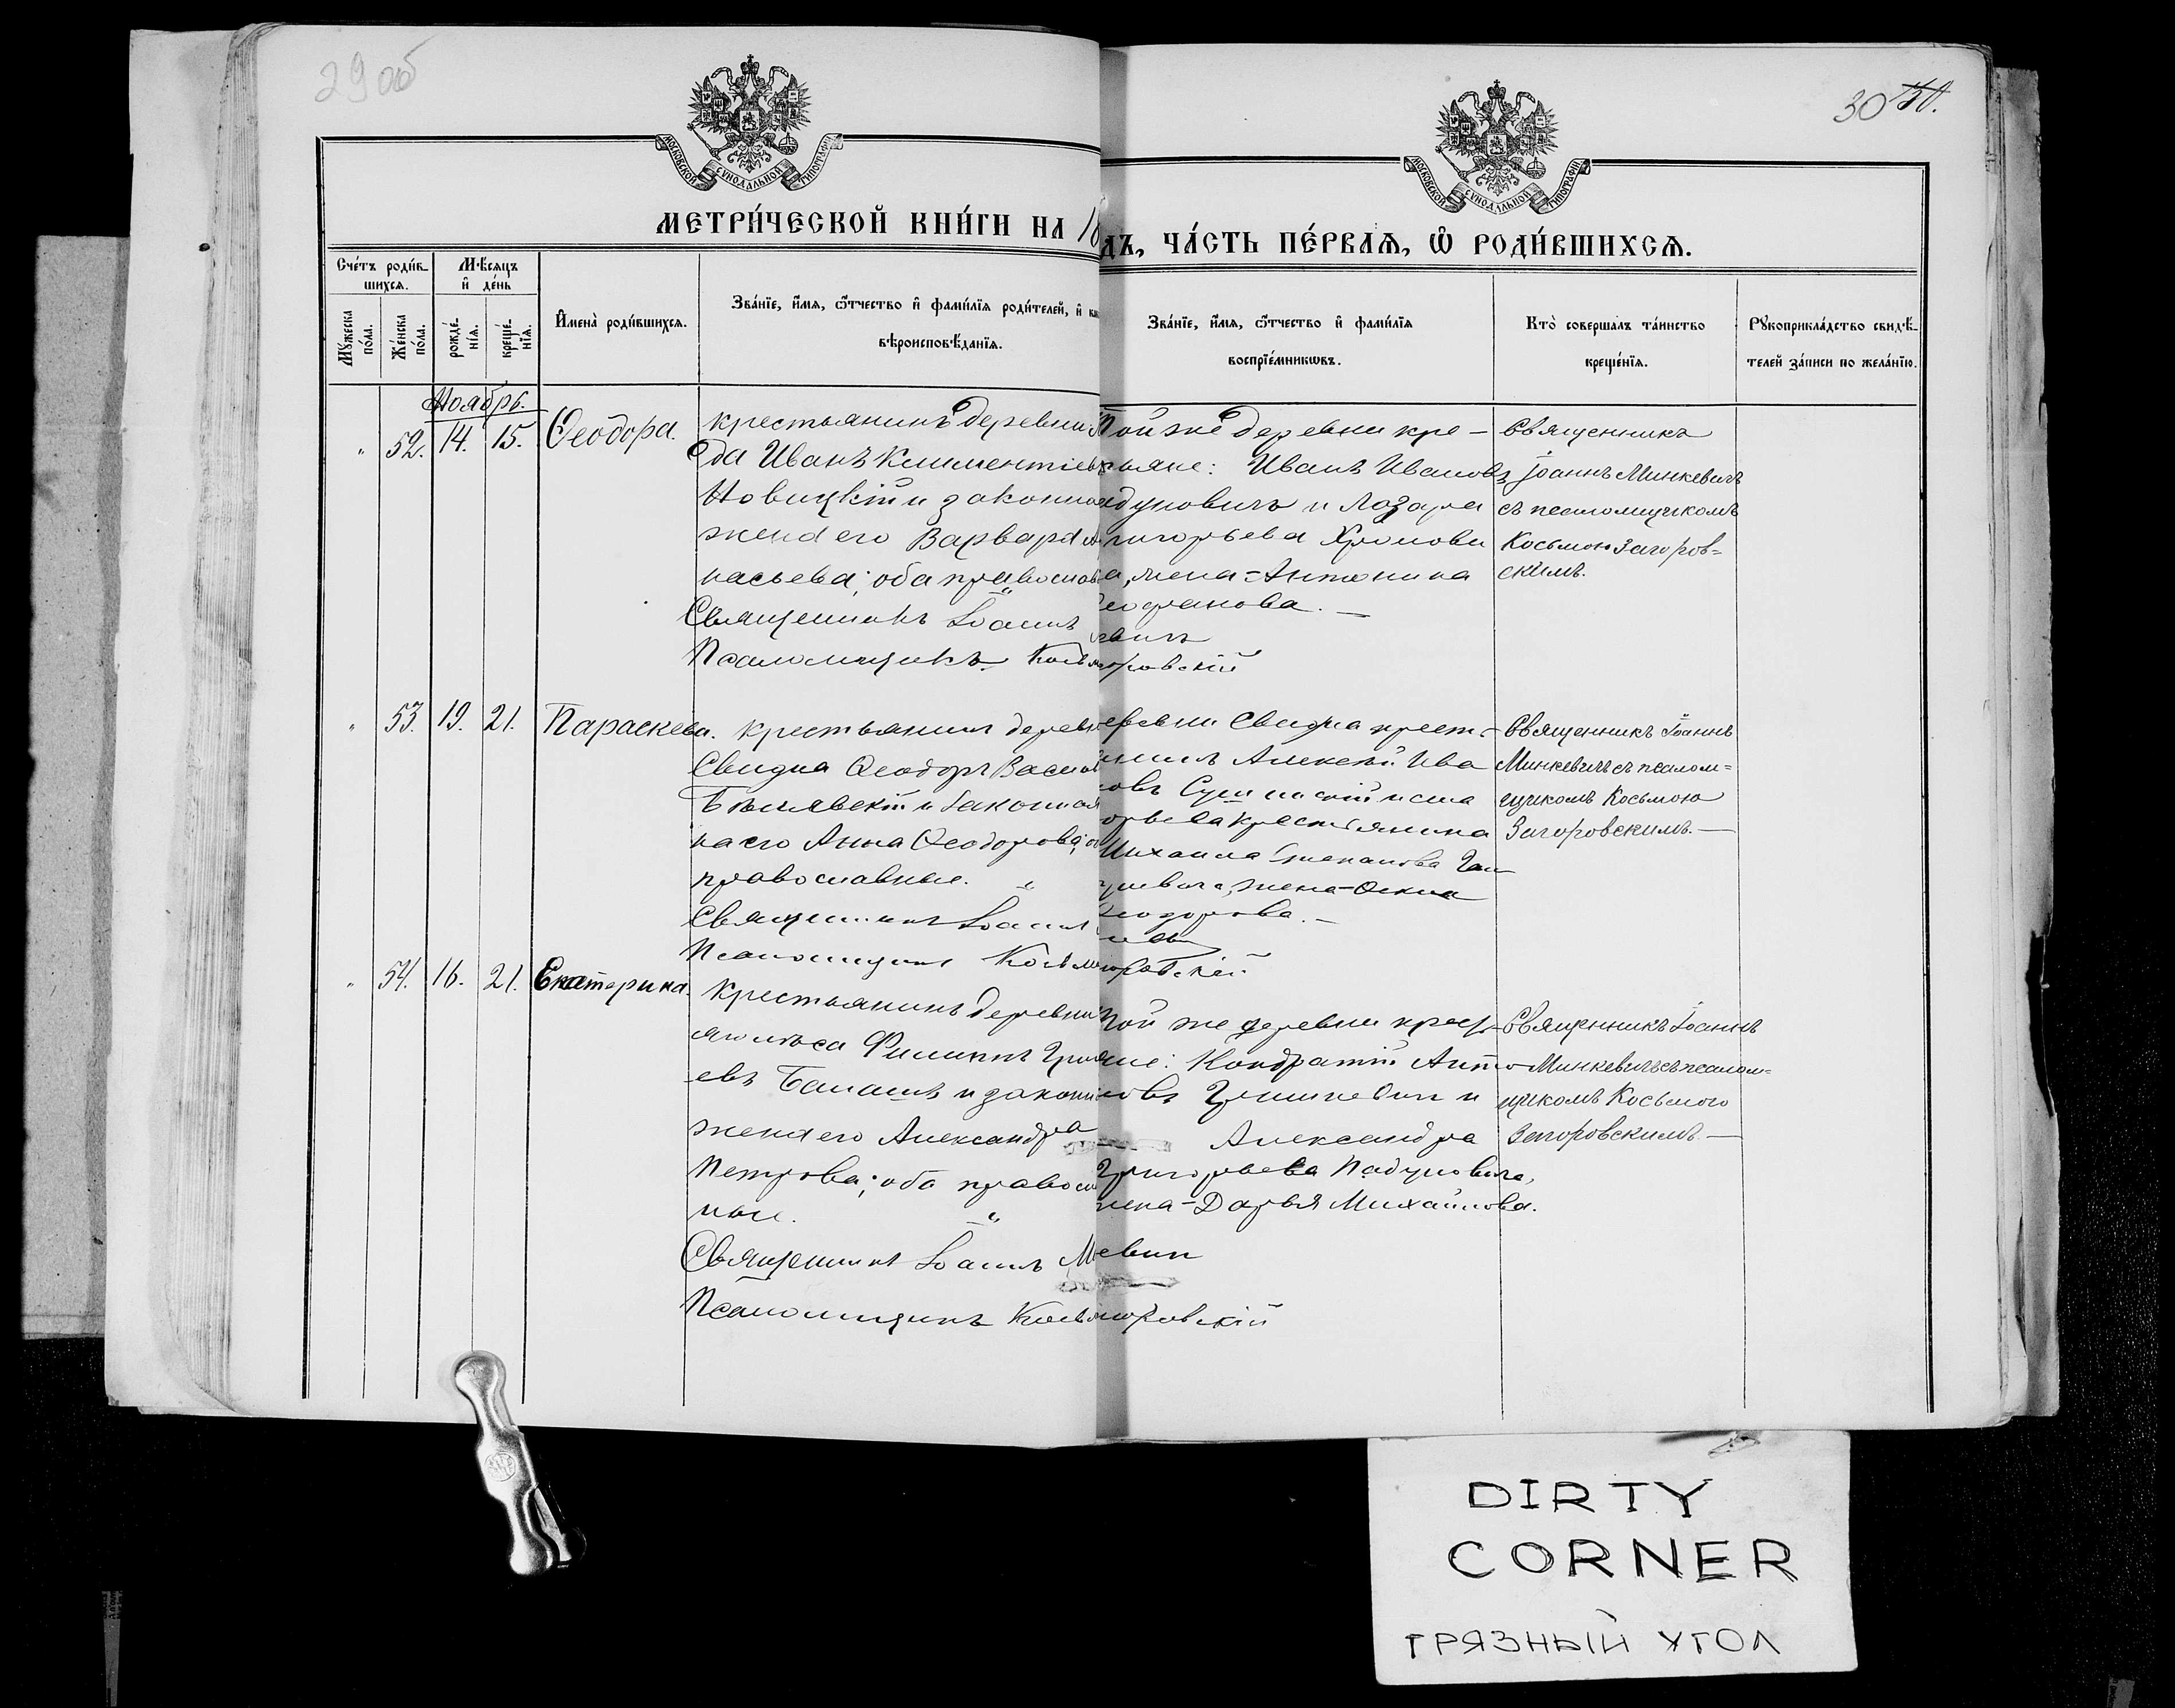 29 об
30
МОСКОВСКОЙ СУНОДАЛЬНОЙ ТИПОГРАФІИ
МОСКОВСКОЙ СУНОДАЛЬНОЙ ТИПОГРАФІИ
МЕТРИ́ЧЕСКОЙ КНИ́ГИ НА 18
ДЪ, ЧА́СТЬ ПЕ́РВАѦ, Ѽ РОДИ́ВШИХСѦ.
Сче́тъ роди́в-
шихсѧ.
Мꙋ́жеска по́ла.
Же́нска по́ла.
Мѣ́сѧцъ
и҆ де́нь
рожде́-
нїѧ.
креще́-
нїѧ.
И҆мена̀ роди́вшихсѧ.
Зва́нїе, и҆́мѧ, ѻ҆́тчество и҆ фами́лїѧ роди́телей, и҆ ка
вѣроисповѣ́данїѧ.
Зва́нїе, и҆́мѧ, ѻ҆́тчество и҆ фами́лїѧ
воспрїе́мникѡвъ.
Кто̀ соверша́лъ та́инство
креще́нїѧ.
Рꙋкоприкла́дство свидѣ́-
телей за́писи по жела́нїю.
Ноябрь.
" 52. 14. 15. Ѳеодора.
крестьянинъ деревни
да Иванъ Климентіев
Новицкій и законна
жена его Варвара А
насьева; оба православ
Священникъ Іоаннъ
Псаломщикъ Косьм
Той же деревни кре-
стьяне: Иванъ Ивановъ
дуновичъ и Лазаря
Григорьева
а, жена - Антонина
еофанова. —
евичъ
оровскій
Священникъ
Іоаннъ Минкевичъ
съ псаломщикомъ
Косьмою Загоров=
скимъ.
" 53. 19. 21. Параскева.
крестьянинъ дерев
Свидна Ѳеодоръ Васил
Бѣлявскій и законная
на его Анна Ѳеодорова; об
православные. "
Священникъ Іоаннъ
Псаломщикъ Косьм
еревни Свидна крест-
нинъ Алексѣй Ива
овъ
крестьянина
Михаила Степанова
жена -
Ѳеодорова. —
оровскій
Священникъ Іоаннъ
Минкевичъ съ псалом=
щикомъ Косьмою
Загоровскимъ. —
" 54. 16. 21. Екатерина.
крестьянинъ деревни
Филиппъ Григ
евъ Балашъ и законн
жена его Александра
Петрова; оба правосл
ные. "
Священникъ Іоаннъ М
Псаломщикъ Косьм
Той же деревни крест
яне: Кондратій Анто
новъ и
Александра
Григорьева Падуновича,
жена - Дарья Михайлова.
евичъ
оровскій
Священникъ Іоаннъ
Минкевичъ съ псалом=
щикомъ Косьмою
Загоровскимъ. —
DIRTY
CORNER
ГРЯЗНЫЙ УГОЛ